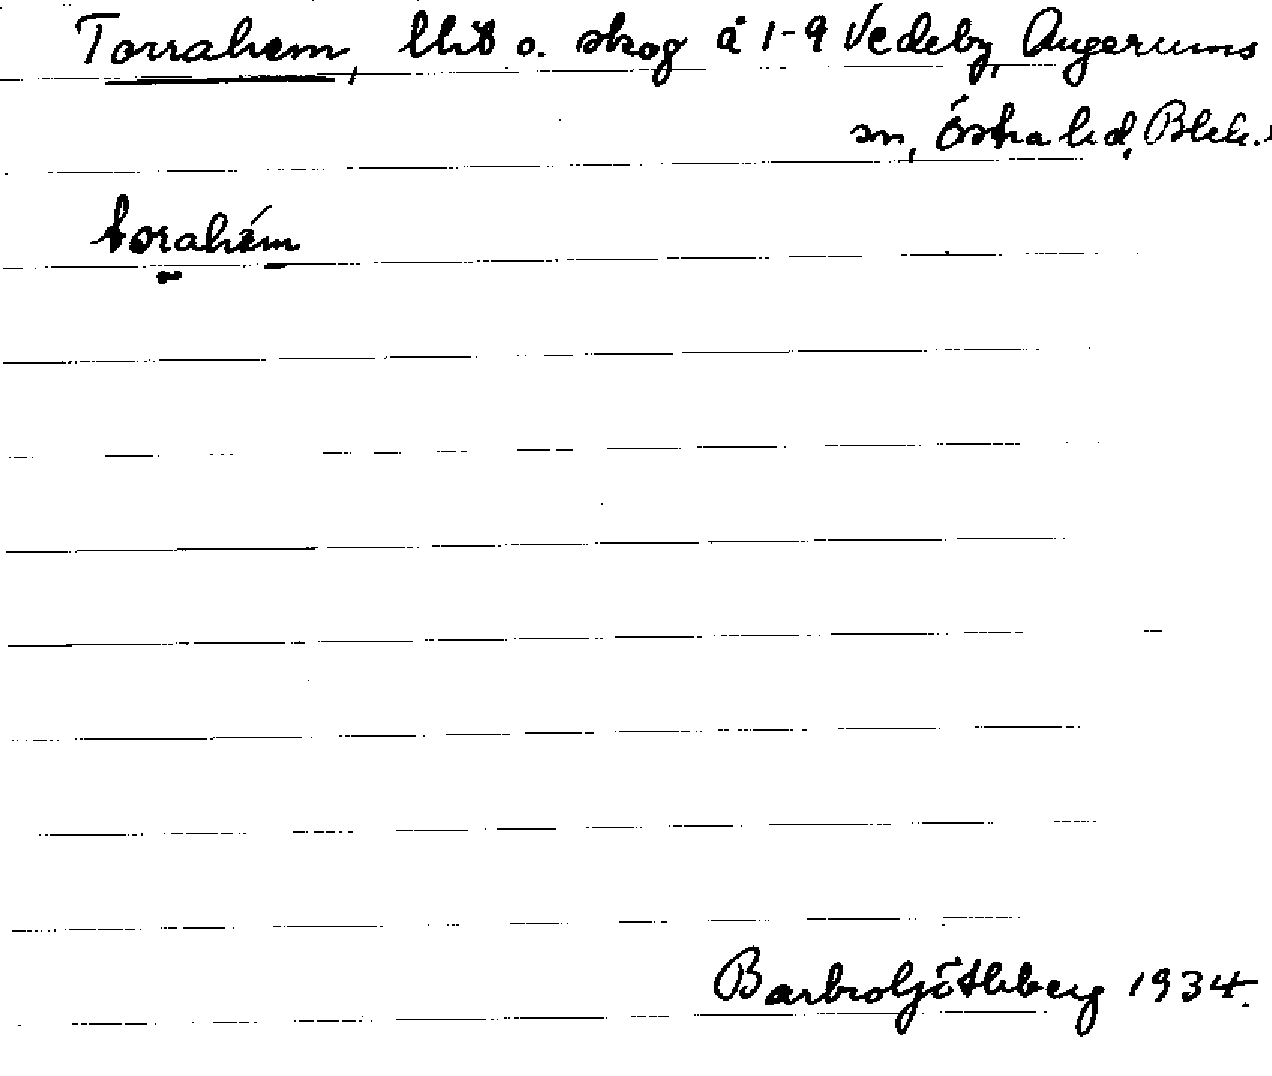 Torrahem, Utß o. skog å 1-9 Vedeby, Augerums
sn, Östra hd, Blek.
torahém
Barbro Götheberg 1934.